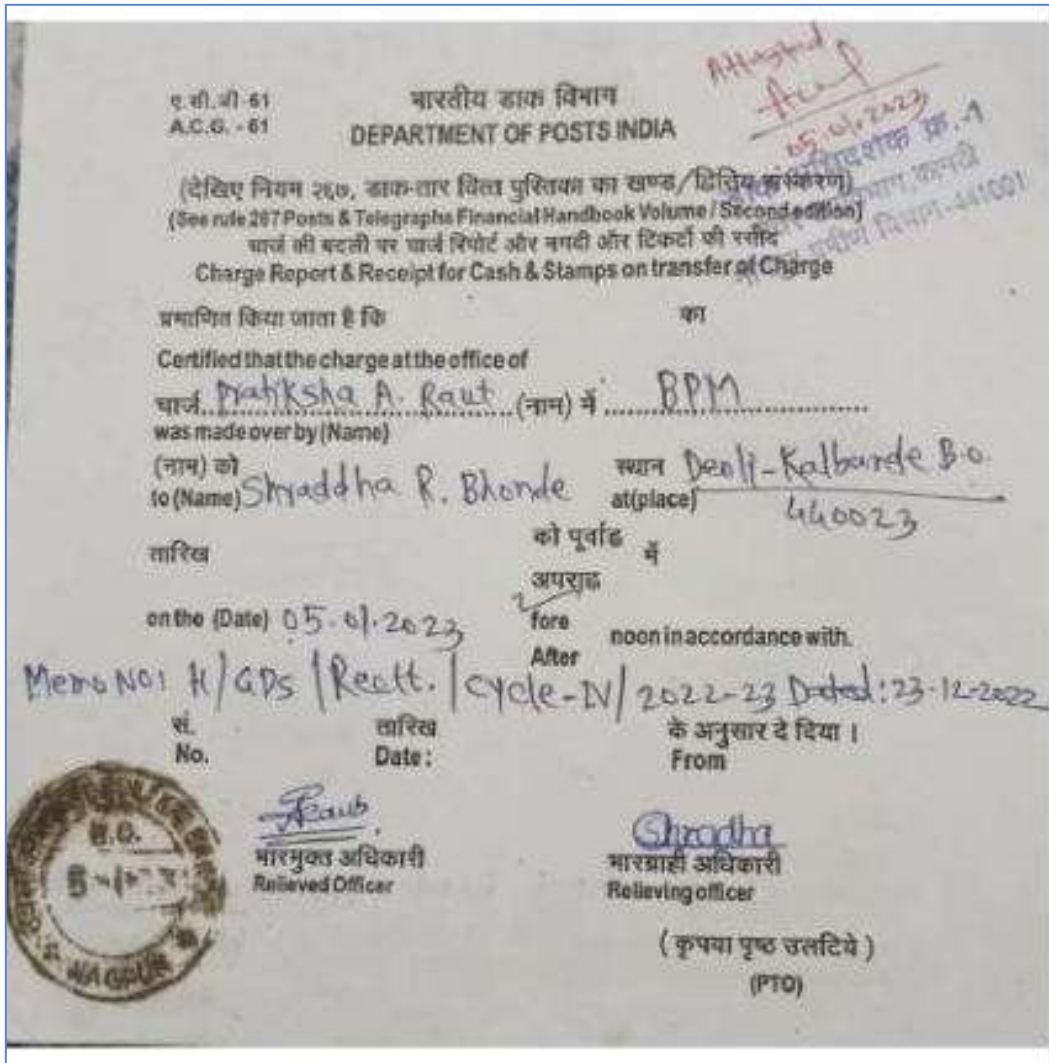 Attested
05.01.2023
ए.सी.जी-61
A.C.G. - 61
भारतीय डाक विभाग
DEPARTMENT OF POSTS INDIA
क्र.-1
विभाग-441001
(देखिए नियम २६७, डाक-तार वित्त पुस्तिका का खण्ड/द्वितिय संस्करण)
(See rule 267 Posts & Telegraphs Financial Handbook Volume / Second edition)
चार्ज की बदली पर चार्ज रिपोर्ट और नगदी और टिकटों की रसीद
Charge Report & Receipt for Cash & Stamps on transfer of Charge
प्रमाणित किया जाता है कि का
Certified that the charge at the office of
चार्ज.. Pratiksha A. Raut (नाम) में BPM
was made over by (Name)
(नाम) को स्थान Deoli-Kalbande B.O.
to (Name) Shraddha R. Bhonde at(place) 440023
तारिख को पूर्वाह्न में
अपराह्न
on the (Date) 05.01.2023 fore noon in accordance with.
After
Memo No: H/GDS/Rectt./Cycle-IV/2022-23 Dated: 23-12-2022
सं. तारिख के अनुसार दे दिया ।
No. Date: From
B.O.
NAGPUR
Raut
Shradha
भारमुक्त अधिकारी भारग्राही अधिकारी
Relieved Officer Relieving officer
(कृपया पृष्ठ उलटिये)
(PTO)